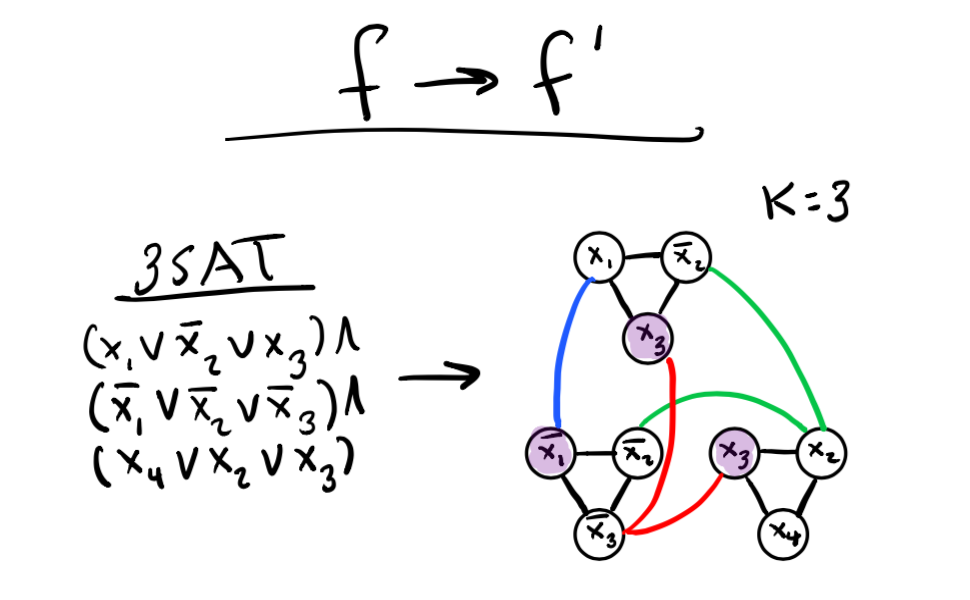 f → f'
K=3
3SAT
(x₁ ∨ x̅₂ ∨ x₃) ∧
(x̅₁ ∨ x̅₂ ∨ x̅₃) ∧
(x₄ ∨ x₂ ∨ x₃)
→
x₁ x̅₂
x₃
x̅₁ x̅₂ x₃ x₂
x̅₃ x₄